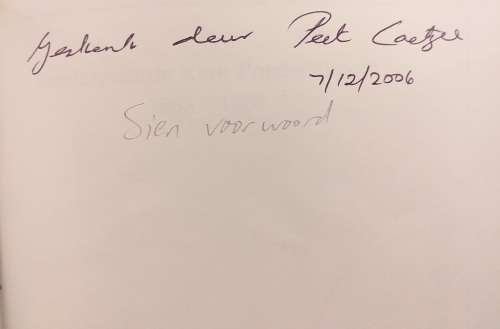 Geskenk deur Peet Coetzee
7/12/2006
Sien voorwoord